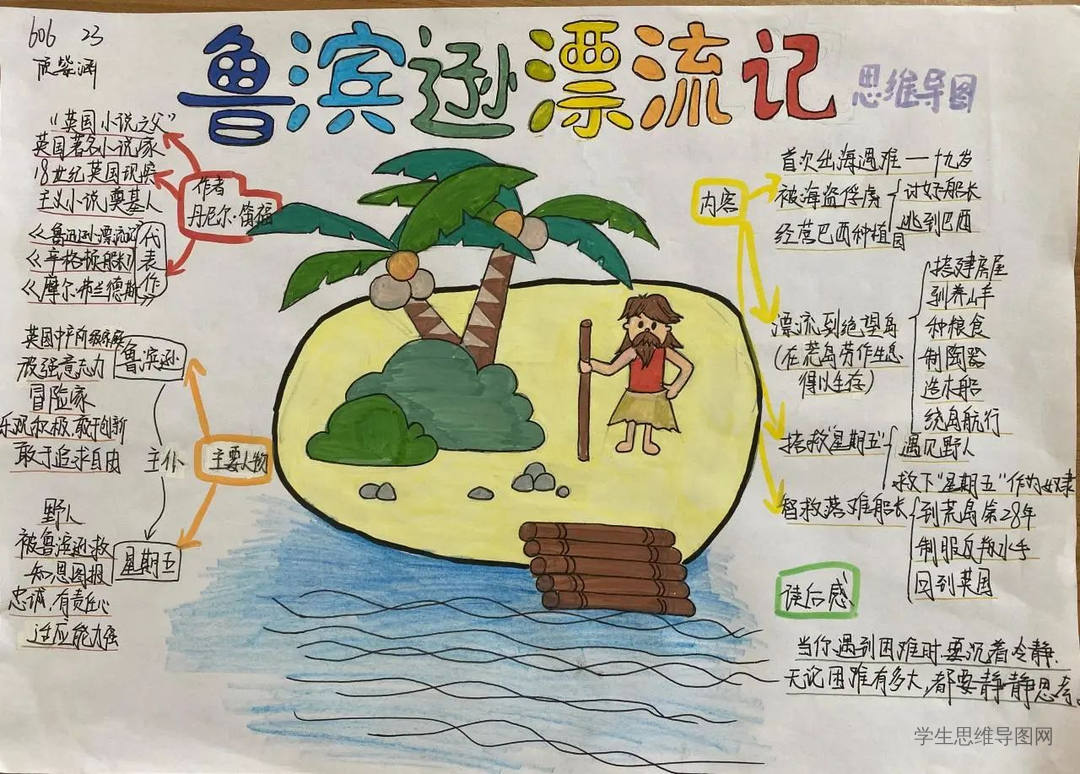 606 23
鲁滨逊漂流记
思维导图
"英国小说之父"
英国著名小说家
18世纪英国现实
主义小说奠基人
《鲁滨逊漂流记》
《辛格顿船长》
《摩尔·弗兰德斯》
代表作
作者
丹尼尔·笛福
英国中产阶级家庭
顽强意志力
冒险家
乐观积极,敢于创新
敢于追求自由
鲁滨逊
主仆
主要人物
野人
被鲁滨逊救
知恩图报
忠诚,有责任心
适应能力强
星期五
内容
首次出海遇难——十九岁
被海盗俘虏
讨好船长
逃到巴西
经营巴西种植园
漂流到绝望岛
(在荒岛劳作生息
得以生存)
搭建房屋
驯养山羊
种粮食
制陶器
造木船
绕岛航行
拯救"星期五"
遇见野人
救下"星期五"作为奴隶
智救落难船长
到荒岛第28年
制服反叛水手
回到英国
读后感
当你遇到困难时要沉着冷静.
无论困难有多大,都要静静思考。
学生思维导图网